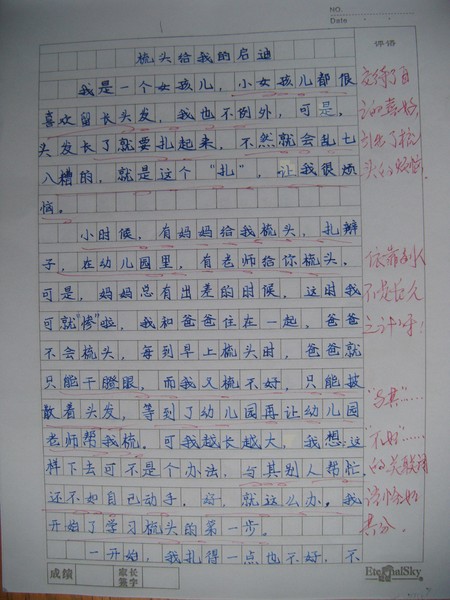 NO.
Date
评语
梳头给我的启迪
我是一个女孩儿，小女孩儿都很
喜欢留长头发，我也不例外，可是，
头发长了就要扎起来，不然就会乱七
八糟的，就是这个"扎"，让我很烦
恼。
小时候，有妈妈给我梳头，扎辫
子，在幼儿园里，有老师给你梳头，
可是，妈妈总有出差的时候，这时我
可就"惨"啦，我和爸爸住在一起，爸爸
不会梳头，每到早上梳头时，爸爸就
只能干瞪眼，而我又梳不好，只能披
散着头发，等到了幼儿园再让幼儿园
老师帮我梳。可我越长越大，我想这
样下去可不是个办法，与其别人帮忙
还不如自己动手，好，就这么办。我
开始了学习梳头的第一步。
一开始，我扎得一点也不好，不
交待了自
己的喜好，
引出了梳
头的烦恼。
依靠别人
不是长久
之计呀！
"与其"……
"不如"……
的关联词
用恰如
其分。
成绩
家长
签字
EternalSky